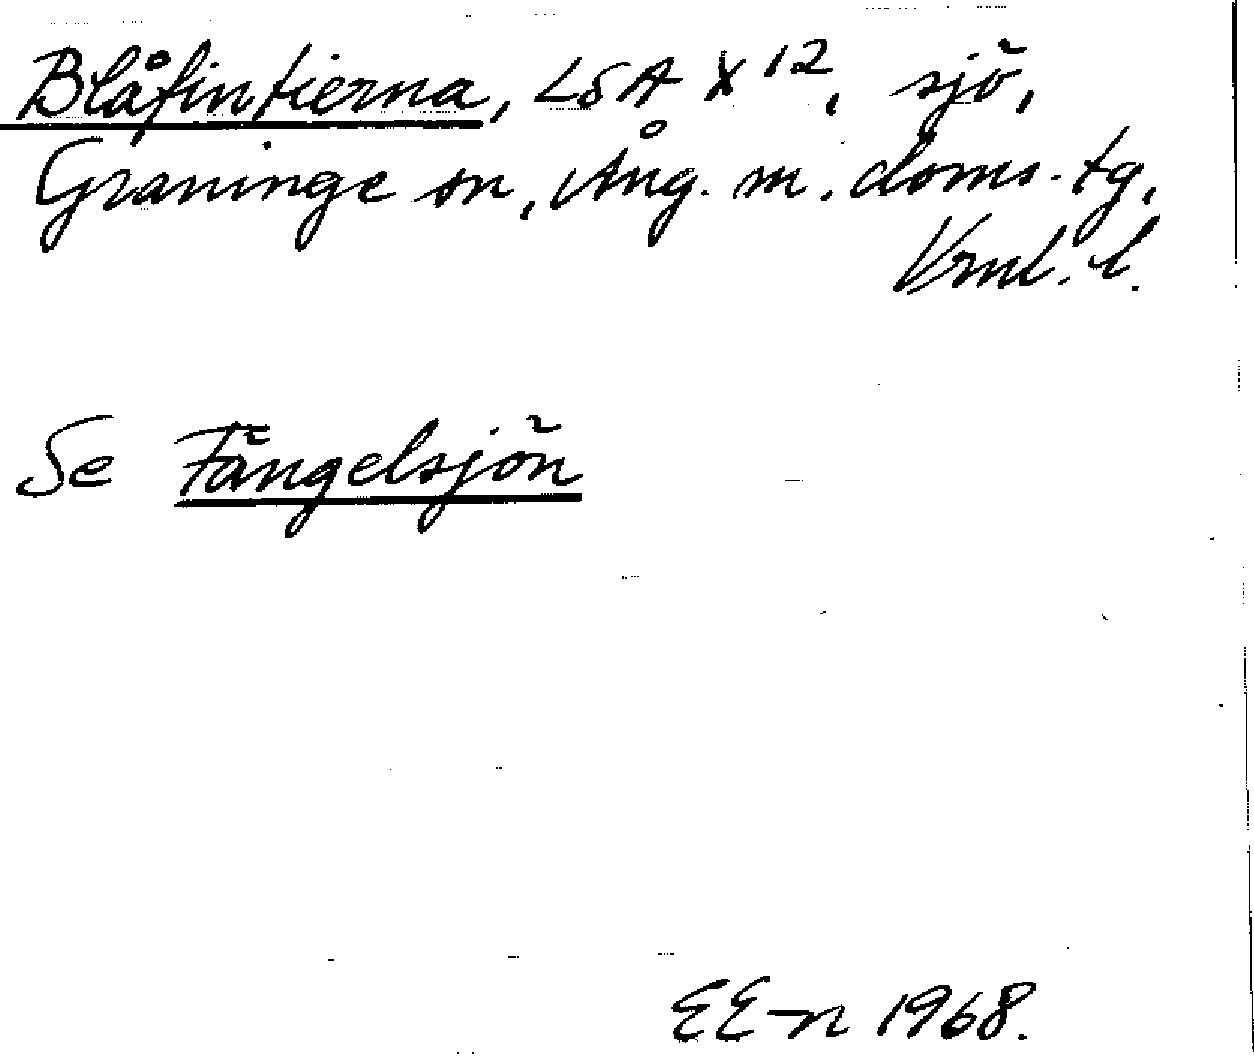 Blåfintierna, LSA X 12, sjö,
Graninge sn, Ång. m. doms. tg,
Vrml. l.
Se Fängelsjön
EE-n 1968.